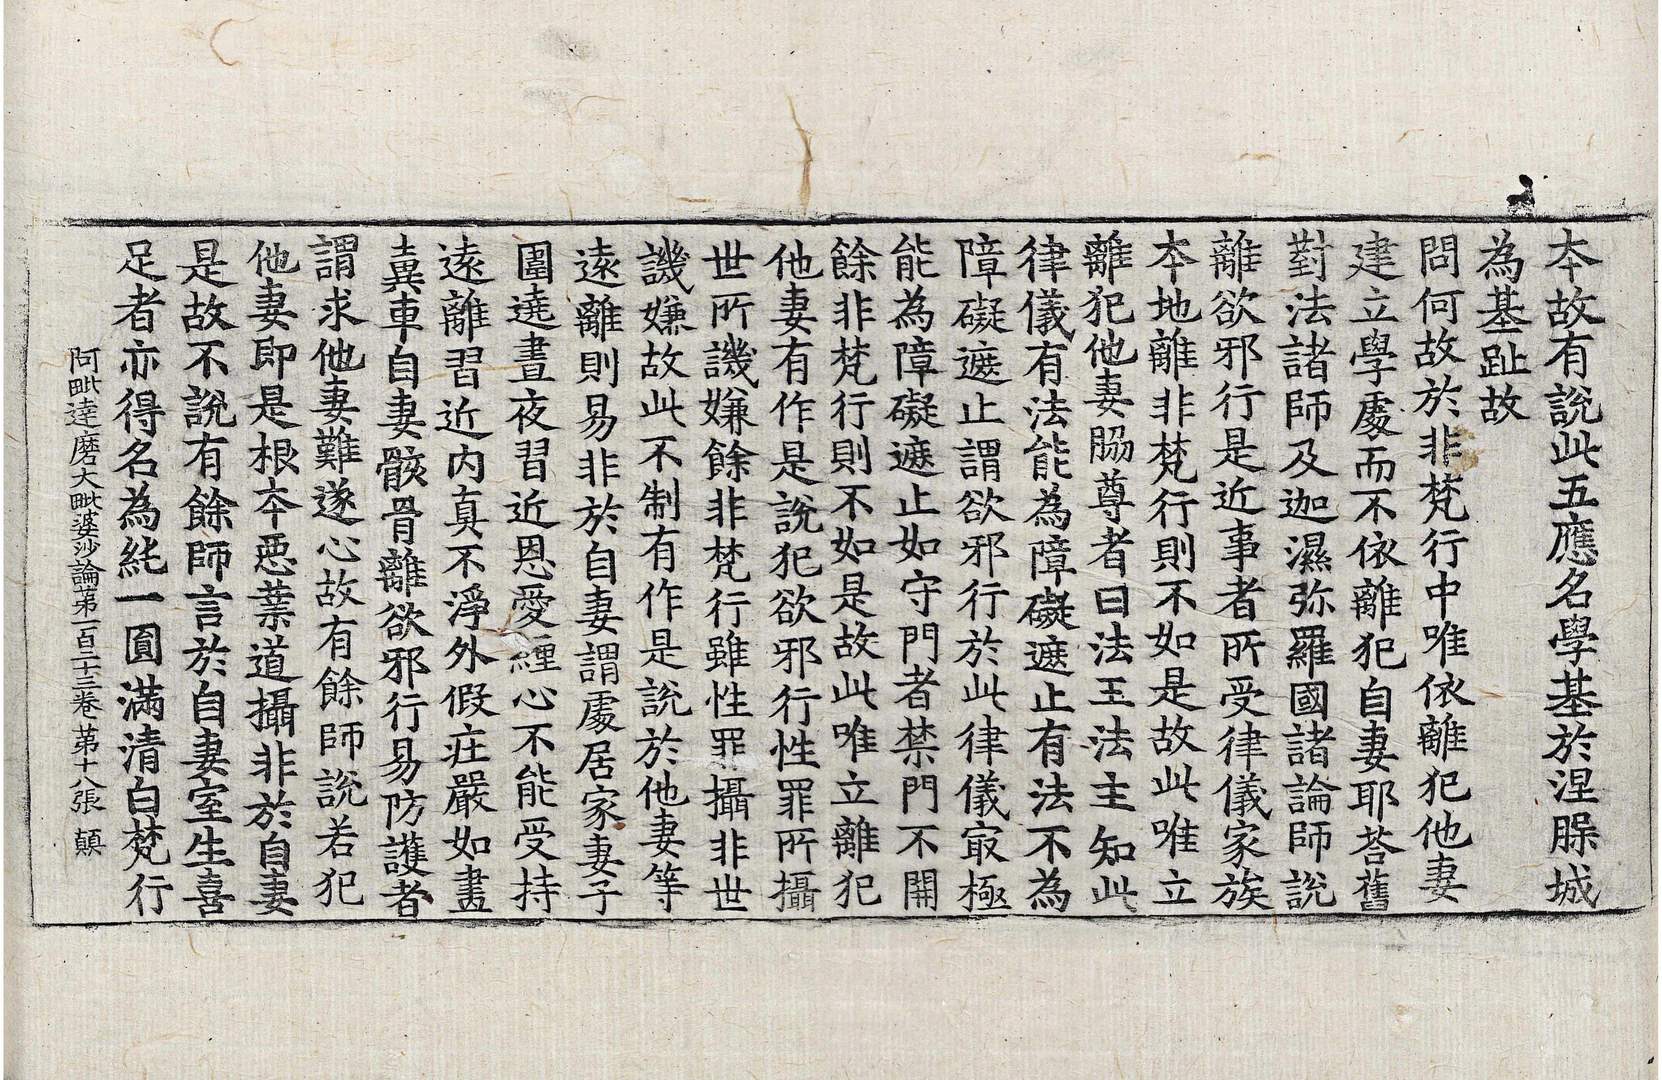 本故有說此五應名學基於涅脲城
為基趾故
問何故於非梵行中唯依離犯他妻
建立學處而不依離犯自妻耶荅舊
對法諸師及迦濕弥羅國諸論師說
離欲邪行是近事者所受律儀家族
本地離非梵行則不如是故此唯立
離犯他妻脇尊者曰法王法主知此
律儀有法能為障礙遮止有法不為
障礙遮止謂欲邪行於此律儀㝡極
能為障礙遮止如守門者禁門不開
餘非梵行則不如是故此唯立離犯
他妻有作是說犯欲邪行性罪所攝
世所譏嫌餘非梵行雖性罪攝非世
譏嫌故此不制有作是說於他妻等
遠離則易非於自妻謂處居家妻子
圍遶晝夜習近恩愛纏心不能受持
遠離習近內真不淨外假莊嚴如畫
糞車自妻骸骨離欲邪行易防護者
謂求他妻難遂心故有餘師說若犯
他妻即是根本惡業道攝非於自妻
是故不說有餘師言於自妻室生喜
足者亦得名為純一圓滿清白梵行
阿毗達磨大毗婆沙論第一百二十三卷 第十八張 顛